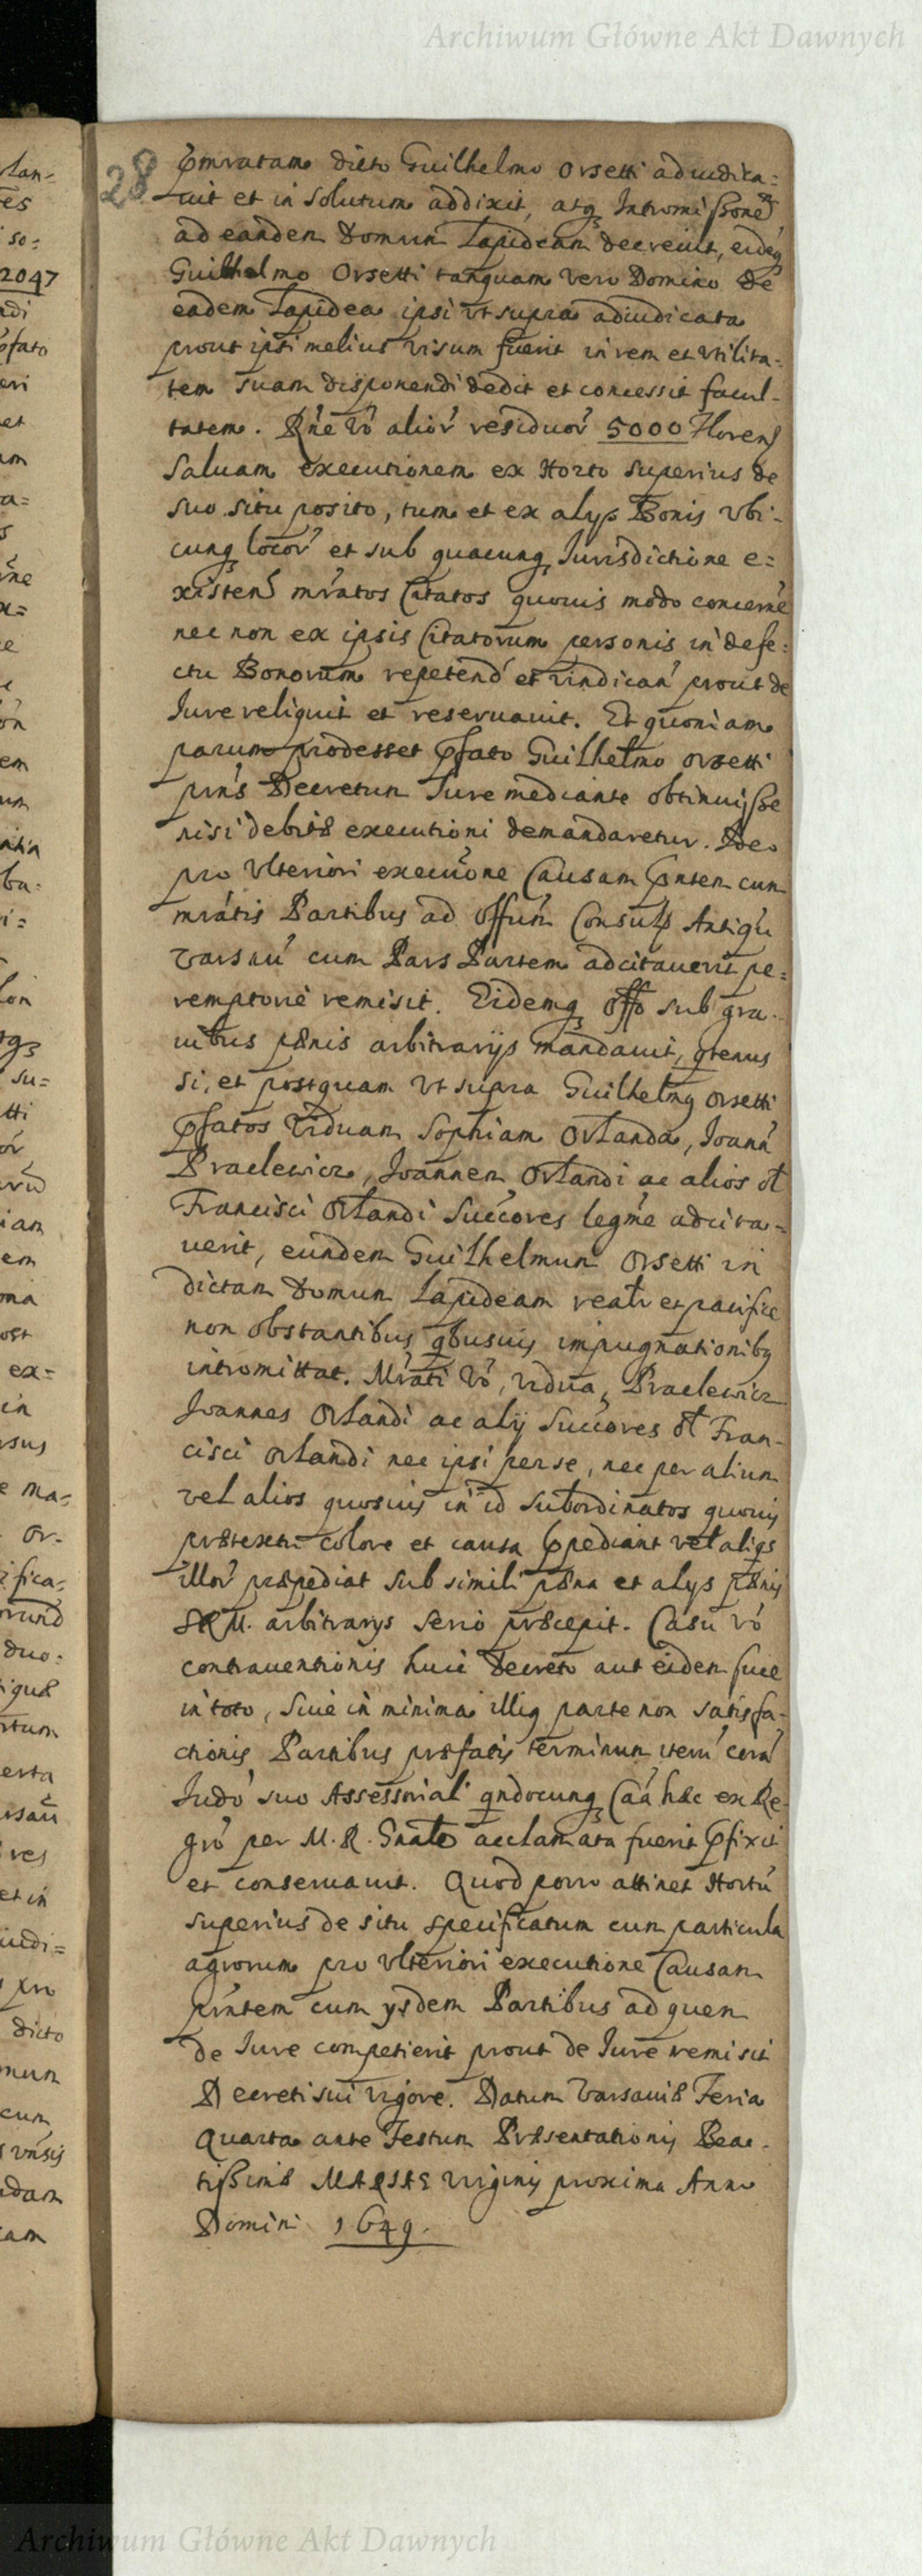 Archiwum Główne Akt Dawnych
28
pmratam dicto Guilhelmo Orsetti adiudica:
uit et in solutum addixit, atq3 Intromissionē
ad eandem Domum Lapideam decreuit, eidēq
Guilhelmo Orsetti tanquam vero Domino de
eadem Lapidea ipsi vt supra adiudicata
prout ipsi melius visum fuerit in rem et vtilita:
tem suam disponendi dedit et concessit facul-
tatem. Rñe vò alior' residuor' 5000 Floren
Saluam executionem ex Horto superius de
suo situ posito, tum et ex alijs Bonis vbi-
cunq locor' et sub quacunq Iurisdictione e=
xisten mr'atos Citatos quouis modo concerne
nec non ex ipsis Citatorum personis in defe:
ctu Bonorum repetend' et vindican' prout de
Iure reliquit et reseruauit. Et quoniam
parum prodesset pfato Guilhelmo Orsetti
prn's Decretum Iure mediante obtinuisse
nisi debitæ executioni demandaretur. Ideo
pro vlteriori executione Causam pntem cum
mratis Partibus ad Offum Consul Antiqu
Varsau' cum Pars Partem adcitauerit pe:
remptorie remisit. Eidemq Offo sub gra-
uibus pænis arbitrarijs mandauit, qtenus
si, et postquam vt supra Guilhelmq Orsetti
pfatos Viduam Sophiam Orlanda, Joann'
Praclewicz, Joannem Orlandi ac alios ol
Francisci Orlandi Succores legme adcita-
uerit, eundem Guilhelmum Orsetti in
dictam Domum Lapideam realr et pacifice
non obstantibus qbusuis impugnationibq
intromittat. Mrati vò, vidua, Praclewicz
Joannes Orlandi ac alij Succores ol Fran-
cisci Orlandi nec ipsi per se, nec per alium
vel alios quosuis in id subordinatos quouis
prætextu colore et causa ppediant vel aliqs
illor' præpediat sub simili pæna et alijs pænis
SRM. arbitrarijs serio præcepit. Casu vò
contrauentionis huic Decreto aut eidem siue
in toto, siue in minima illiq parte non satisfa-
ctionis Partibus præfatis terminum iteru' cora'
Iudo' suo Assessorial' qndocunq Caa hæc ex Re-
gro per M. R. Gnale acclamata fuerit pfixit
et conseruauit. Quod porro attinet Hortu'
superius de situ specificatum cum particula
agrorum pro vlteriori executione Causam
pr'ntem cum ysdem Partibus ad quem
de Iure competierit prout de Iure remisit
Decreti sui vigore. Datum Varsauiæ Feria
Quarta ante Festum Præsentationis Beat-
tissimæ MARIAE Virginis proxima Anno
Domini 1649.
Archiwum Główne Akt Dawnych